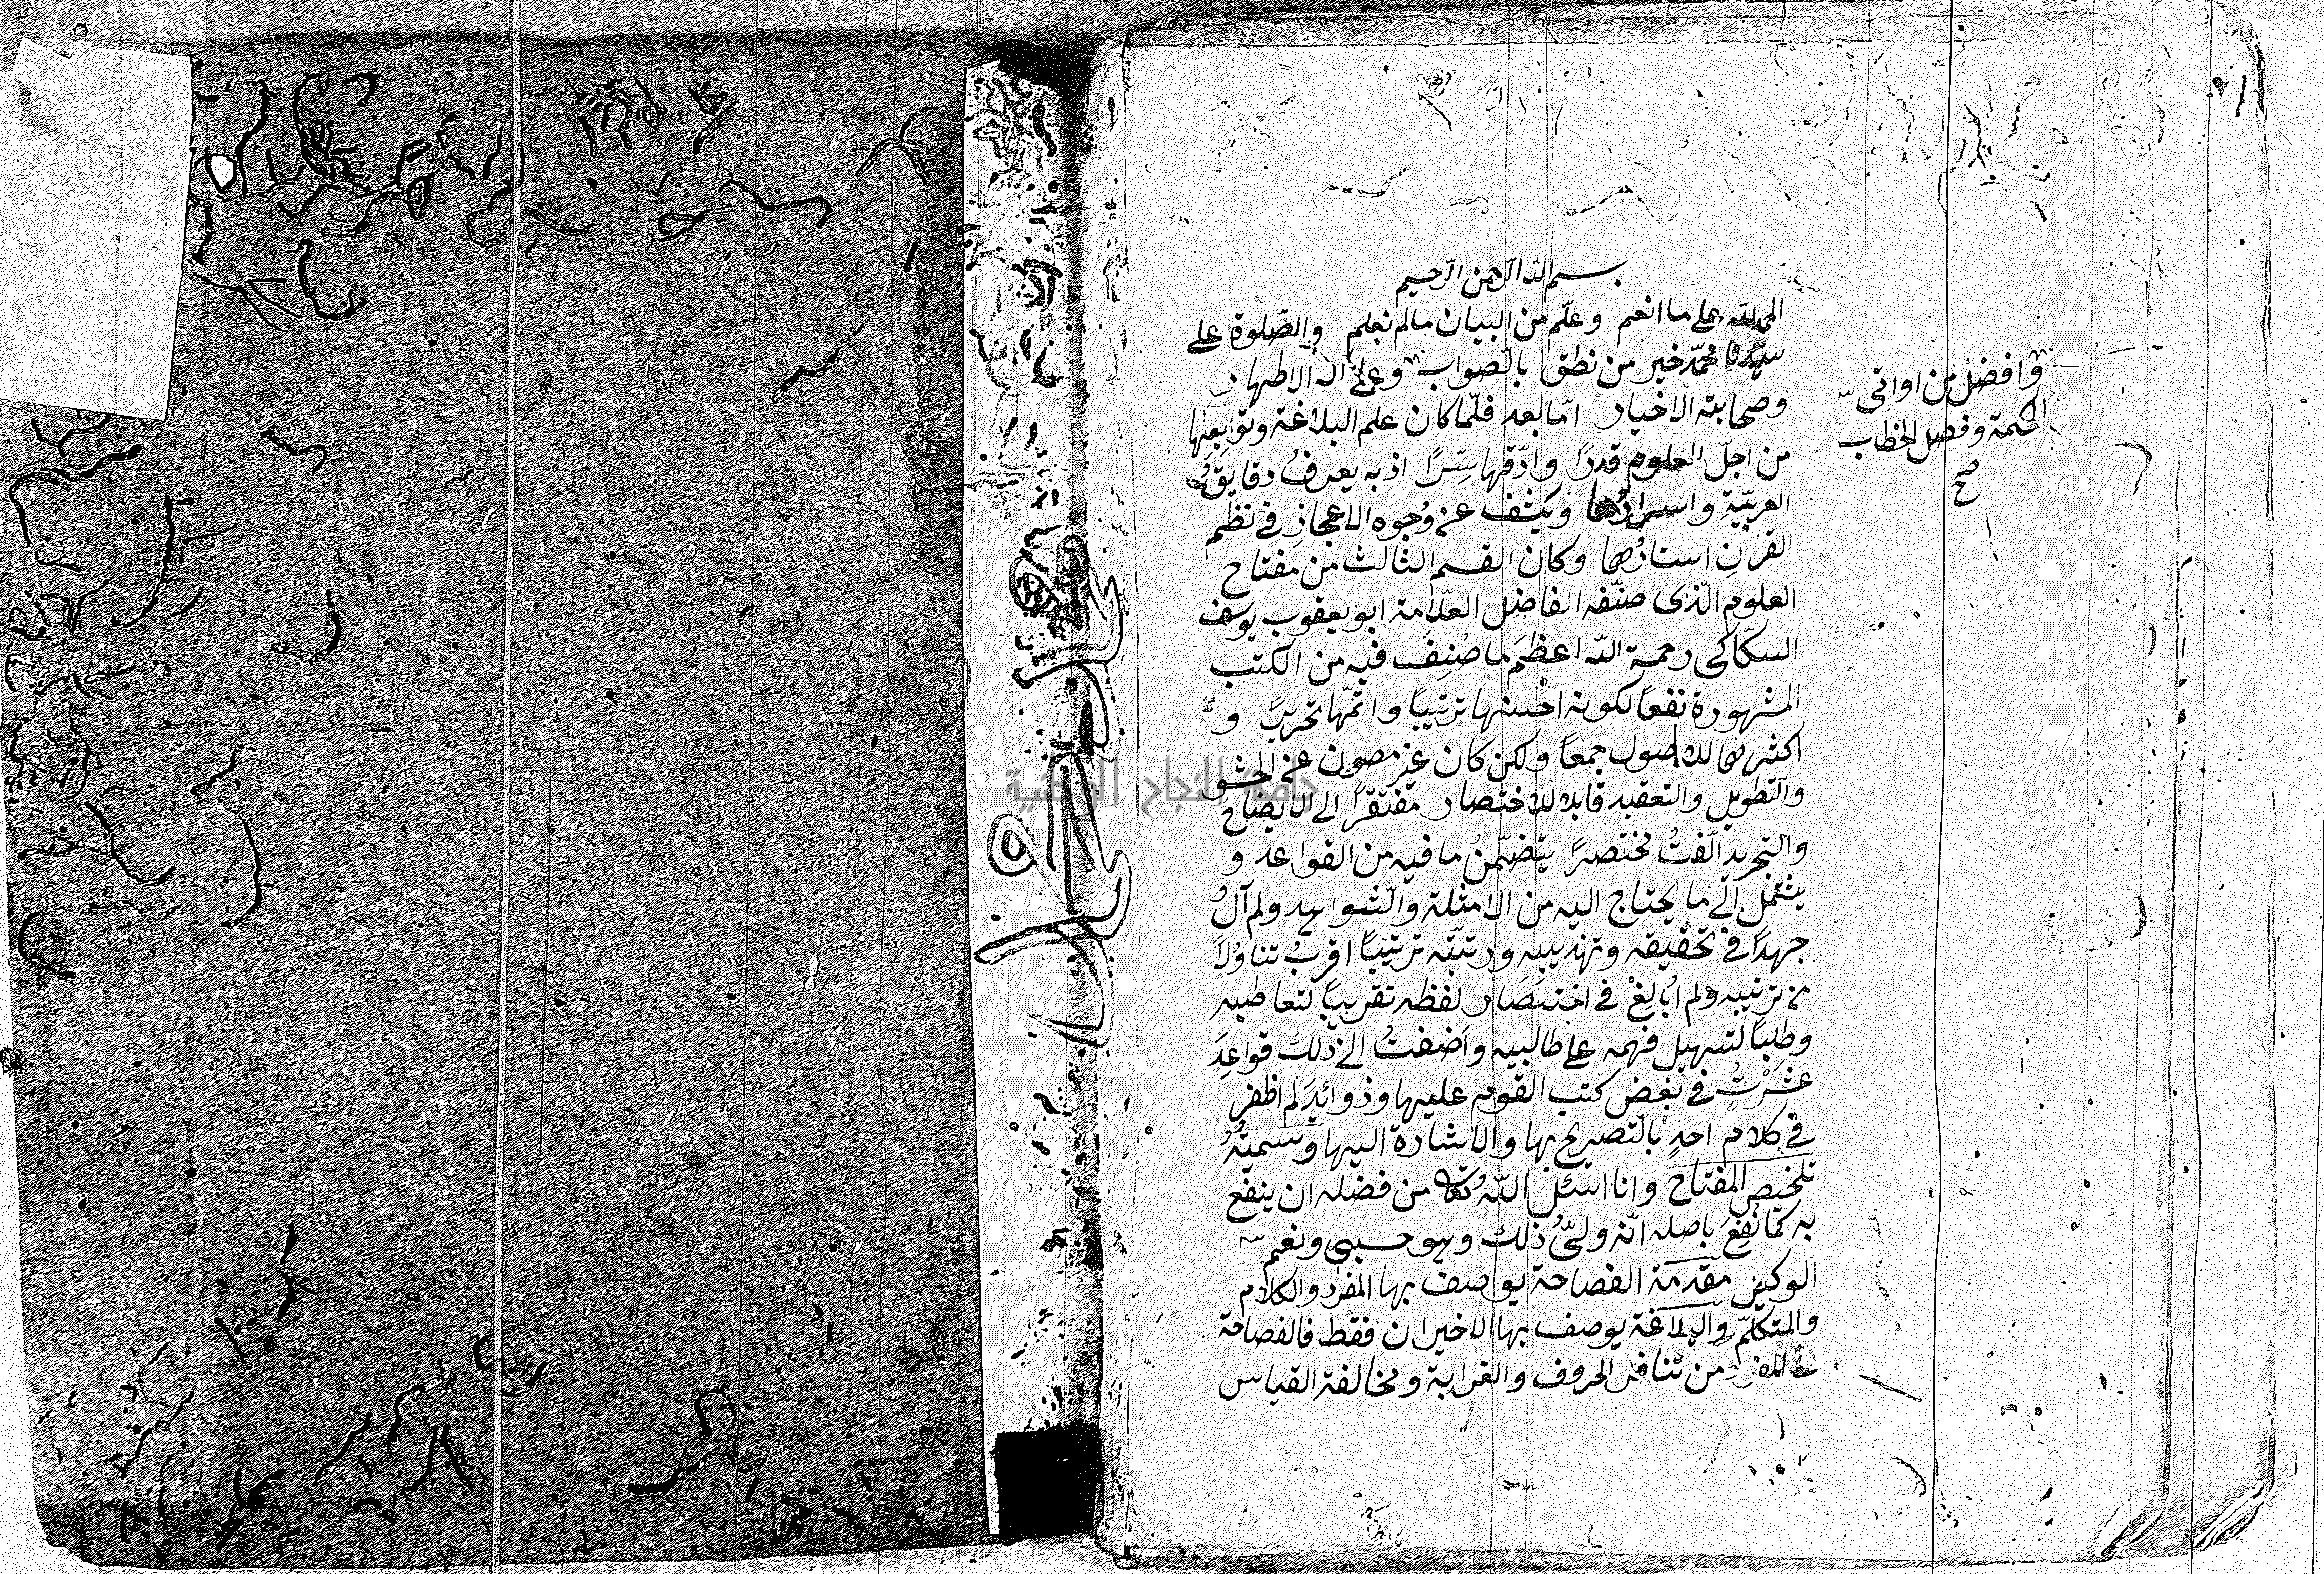 بسم الله الرحمن الرحيم
الحمد لله على ما انعم وعلّم من البيان ما لم نعلم والصّلوة على
سيدنا محمّد خير من نطق بالصواب وعلى آله الاطهار
وصحابته الاخيار امّا بعد فلمّا كان علم البلاغة وتوابعها
من اجلّ العلوم قدرًا وادّقها سِرًّا اذ به يعرف دقايقُ
العربيّةِ واسرارُها ويكشف عن وُجوه الاعجازِ في نظم
القرانِ استارُها وكان القسم الثالث من مفتاح
العلوم الّذى صنّفه الفاضل العلّامة ابو يعقوب يوسف
السكّاكى رحمة الله اعظمَ ما صُنِفَ فيه من الكتب
المشهورة نفعًا لكونه احسنها ترتيبًا واتمّها تحريرًا و
اكثرها للاصول جمعًا ولكن كان غير مصون عن الحشو
والتطويل والتعقيد قابلا للاختصار مفتقرًا الى الايضاح
والتجريد الّفتُ مختصرًا يتضمّنُ ما فيه من القواعد و
يشتمل الى ما يحتاج اليه من الامثلة والشواهد ولم آلُ
جهدًا في تحقيقه وتهذيبه ورتبّته ترتيبًا اقربُ تناوُلًا
من ترتيبه ولم اُبالِغْ في اختصَار لفظه تقريبًا لتعاطيه
وطلبًا لتسهيل فهمه على طالبيه واَضفتُ الى ذلك قواعِدَ
عَثَرْتُ في بعض كتب القوم عليها وزوائِدَ لم اظفر
في كلام احدٍ بالتصريح بها والاشارة اليها وسميتُهُ
تلخيص المفتاح وانا اسئل اللّهُ تعا من فضله ان ينفع
به كما نَفَعَ باصله انّه وليُّ ذلك وهو حسبى ونعم
الوكيل مقدمة الفصاحة يوصف بها المفرد والكلام
والمتكلّم والبلاغة يوصف بها الاخيران فقط فالفصاحة
في المفرد من تنافر الحروف والغرابة ومخالفة القياس
وافضل من اوتى
الحكمة وفصل الخطاب
صح
جامعة النجاح الوطنية